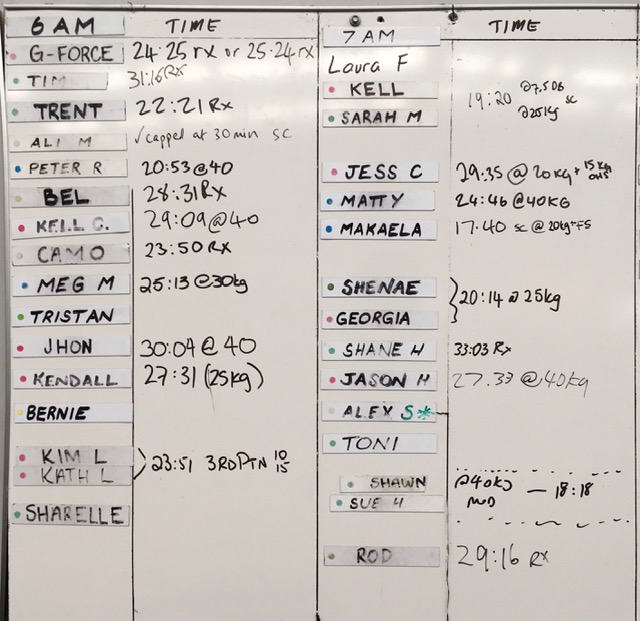 6 AM TIME
G-FORCE 24·25 rx or 25·24 rx
TIM 31:16 Rx
TRENT 22:21 Rx
ALI M √capped at 30 min sc
PETER R 20:53 @ 40
BEL 28:31 RX
KELL G. 29:09 @ 40
CAMO 23:50 RX
MEG M 25:13 @ 30kg
TRISTAN
JHON 30:04 @ 40
KENDALL 27:31 (25kg)
BERNIE
KIM L
KATH L
23:51 3RD PTN 10 15
SHARELLE
7 AM TIME
Laura F
KELL
SARAH M
19:20 @7,5 DB sc
@25kg
JESS C 29:35 @ 20KG + 15kg OHS
MATTY 24:46 @ 40KG
MAKAELA 17·40 sc @ 20kg + FS
SHENAE
GEORGIA
20:14 @ 25kg
SHANE H 33:03 Rx
JASON H 27.33 @ 40kg
ALEX S*
TONI
SHAWN
SUE H
@40KG MOD — 18:18
ROD 29:16 Rx